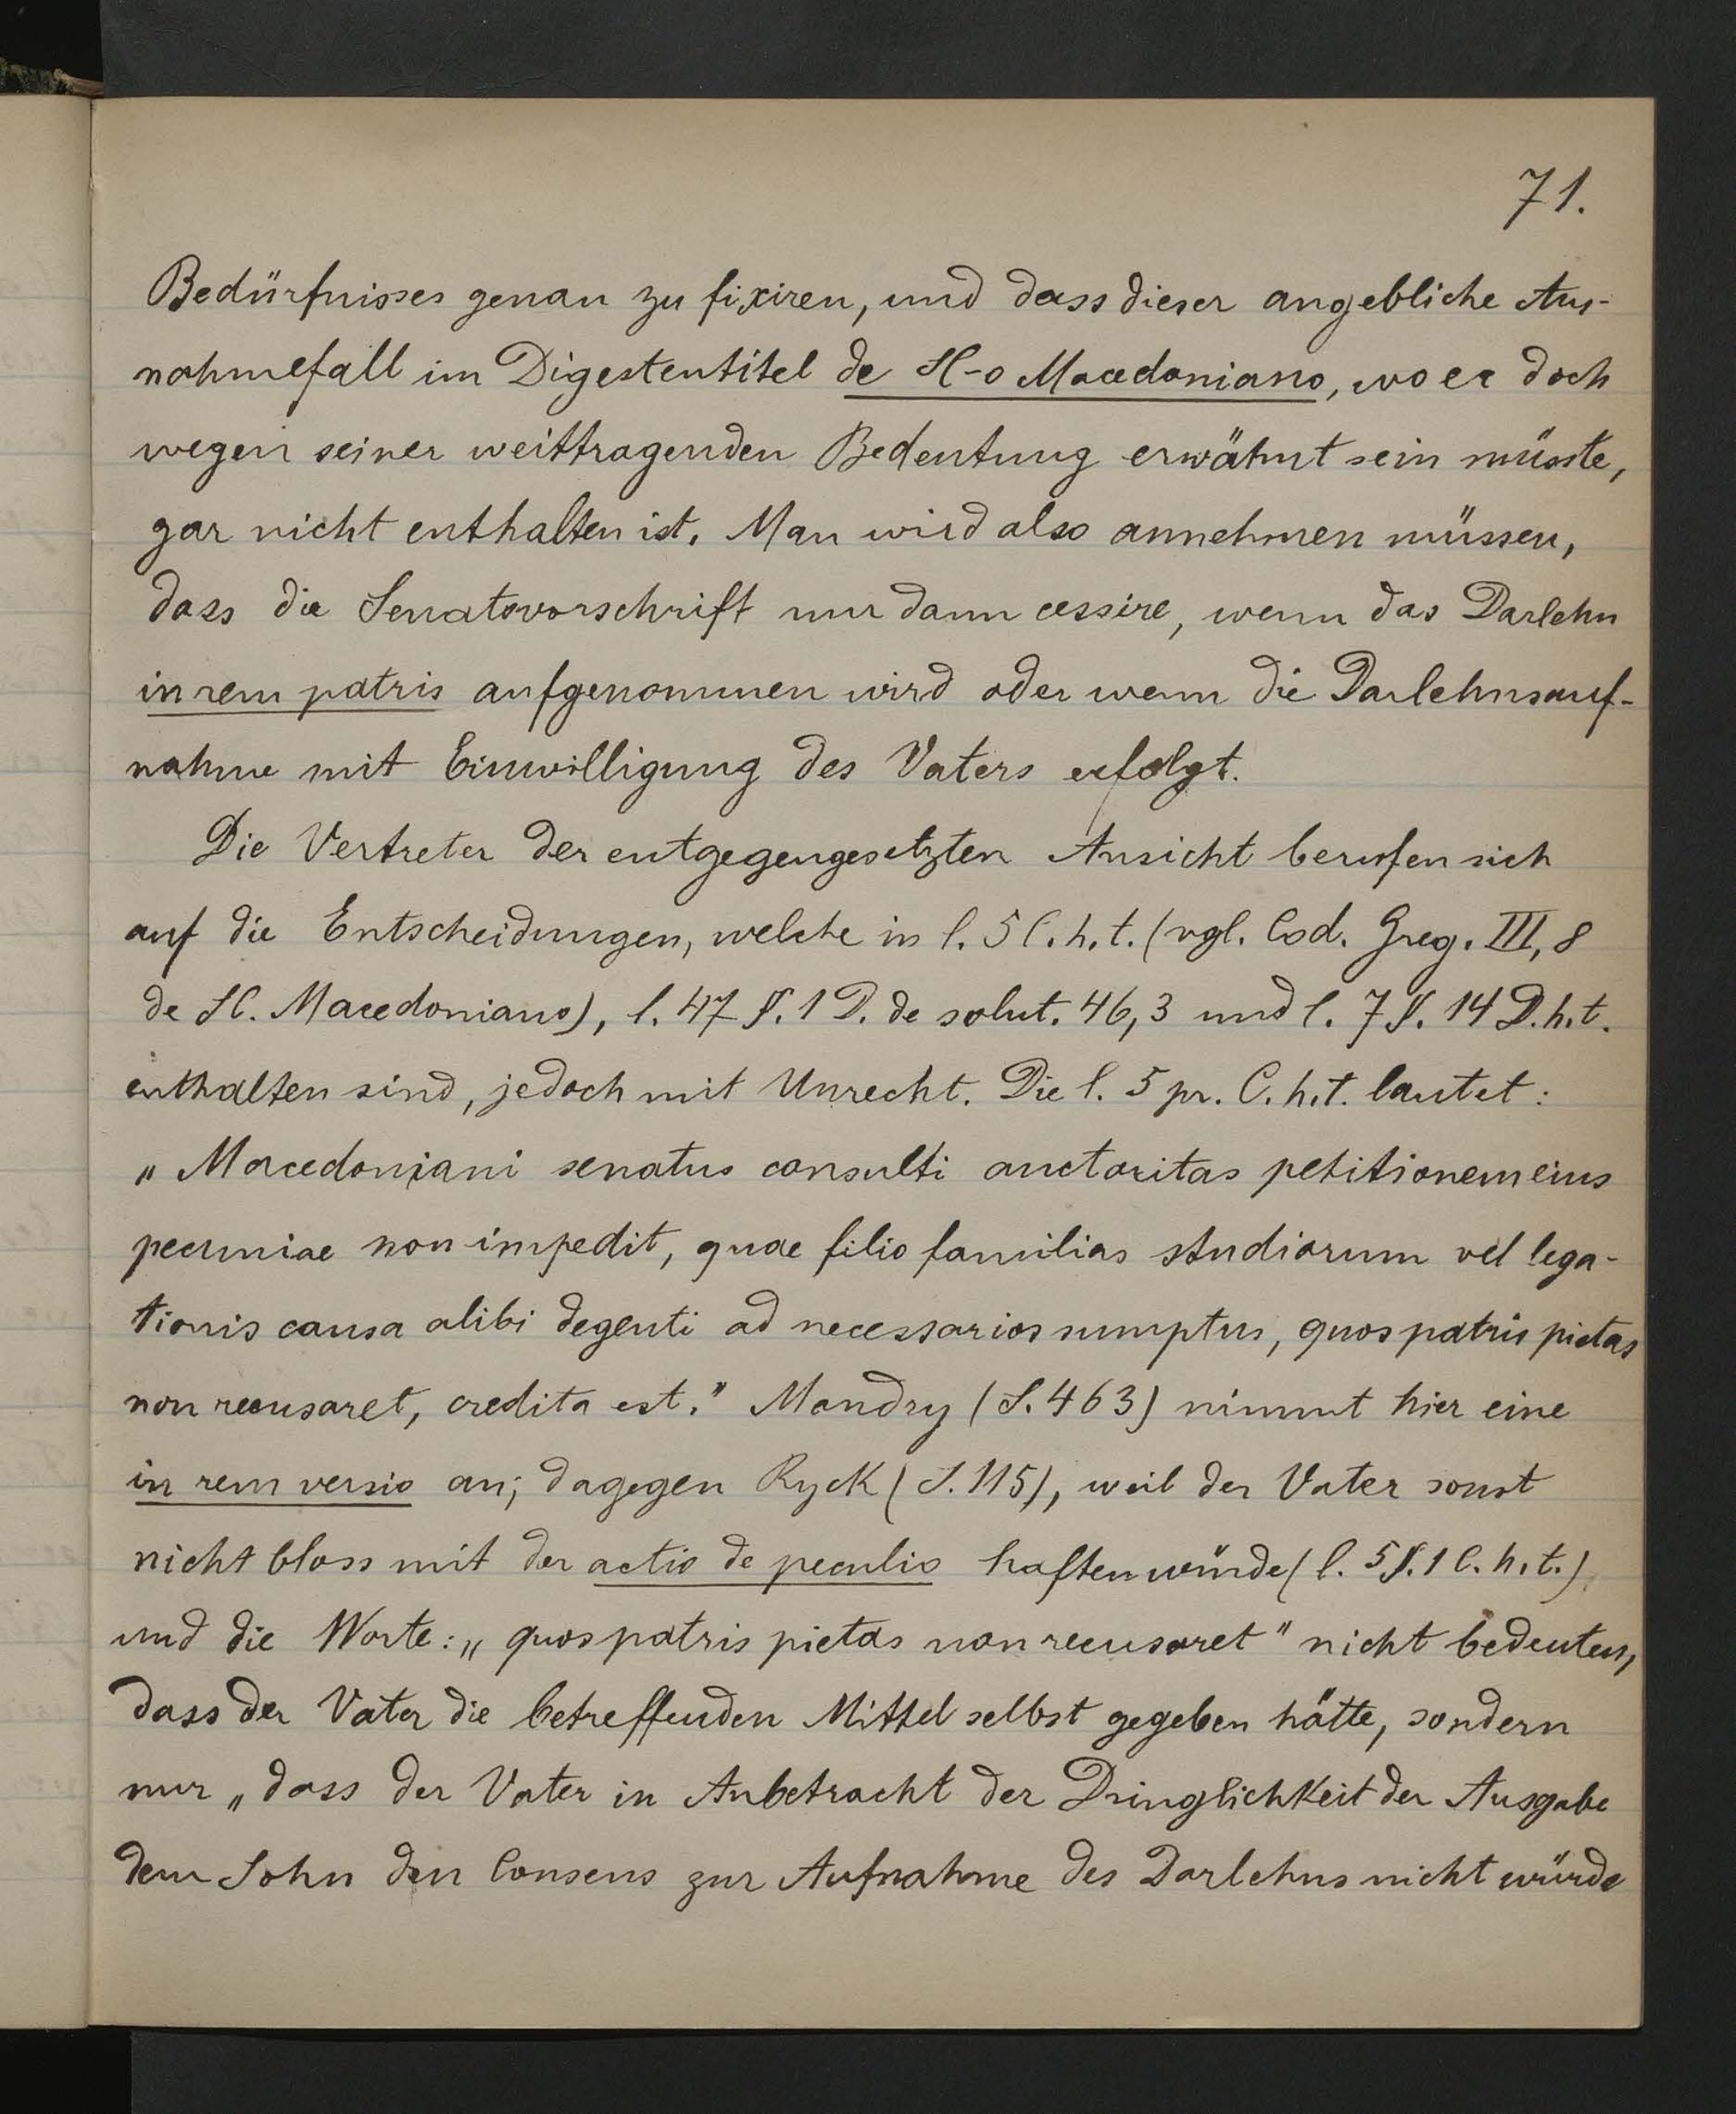 71.
Bedürfnisses genau zu fixiren, und dass dieser angebliche Aus-
nahmefall im Digestentitel de SC-o Macedoniano, wo er doch
wegen seiner weittragenden Bedeutung erwähnt sein müsste,
gar nicht enthalten ist. Man wird also annehmen müssen,
dass die Senatsvorschrift nur dann cessire, wenn das Darlehn
in rem patris aufgenommen wird oder wenn die Darlehnsauf-
nahme mit Einwilligung des Vaters erfolgt.
Die Vertreter der entgegengesetzten Ansicht berufen sich
auf die Entscheidungen, welche in l. 5 C. h. t. (vgl. Cod. Greg. III, 8
de SC. Macedoniano), l. 47 §. 1 D. de solut. 46,3 und l. 7 §. 14 D. h. t.
enthalten sind, jedoch mit Unrecht. Die l. 5 pr. C. h. t. lautet:
„Macedoniani senatus consulti auctoritas petitionem eius
pecuniae non impedit, quae filio familias studiorum vel lega-
tionis causa alibi degenti ad necessarios sumptus, quos patris pietas
non recusaret, credita est." Mandry (S. 463) nimmt hier eine
in rem versio an; dagegen Ryck (S. 115), weil der Vater sonst
nicht bloss mit der actio de peculio haften würde (l. 5 §. 1 C. h. t.)
und die Worte: „quos patris pietas non recusaret" nicht bedeuten,
dass der Vater die betreffenden Mittel selbst gegeben hätte, sondern
nur „dass der Vater in Anbetracht der Dringlichkeit der Ausgabe
dem Sohn den Consens zur Aufnahme des Darlehns nicht würde